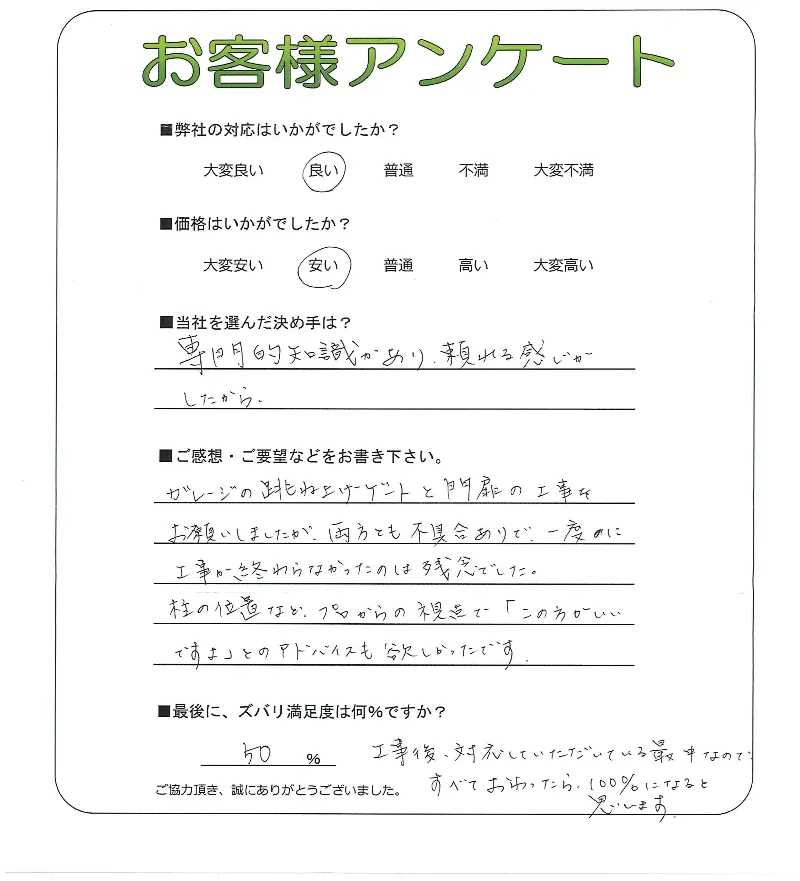 お客様アンケート
■弊社の対応はいかがでしたか？
大変良い 良い 普通 不満 大変不満
■価格はいかがでしたか？
大変安い 安い 普通 高い 大変高い
■当社を選んだ決め手は？
専門的知識があり、頼れる感じが
したから、
■ご感想・ご要望などをお書き下さい。
ガレージの跳ね上げゲートと門扉の工事を
お願いしましたが、両方とも不具合ありで、一度めに
工事が終わらなかったのは残念でした。
柱の位置など、プロからの視点で「この方がいい
ですよ」とのアドバイスも欲しかったです.
■最後に、ズバリ満足度は何%ですか？
50 %
工事後、対応していただいている最中なので、
すべておわったら、100%になると
思います.
ご協力頂き、誠にありがとうございました。